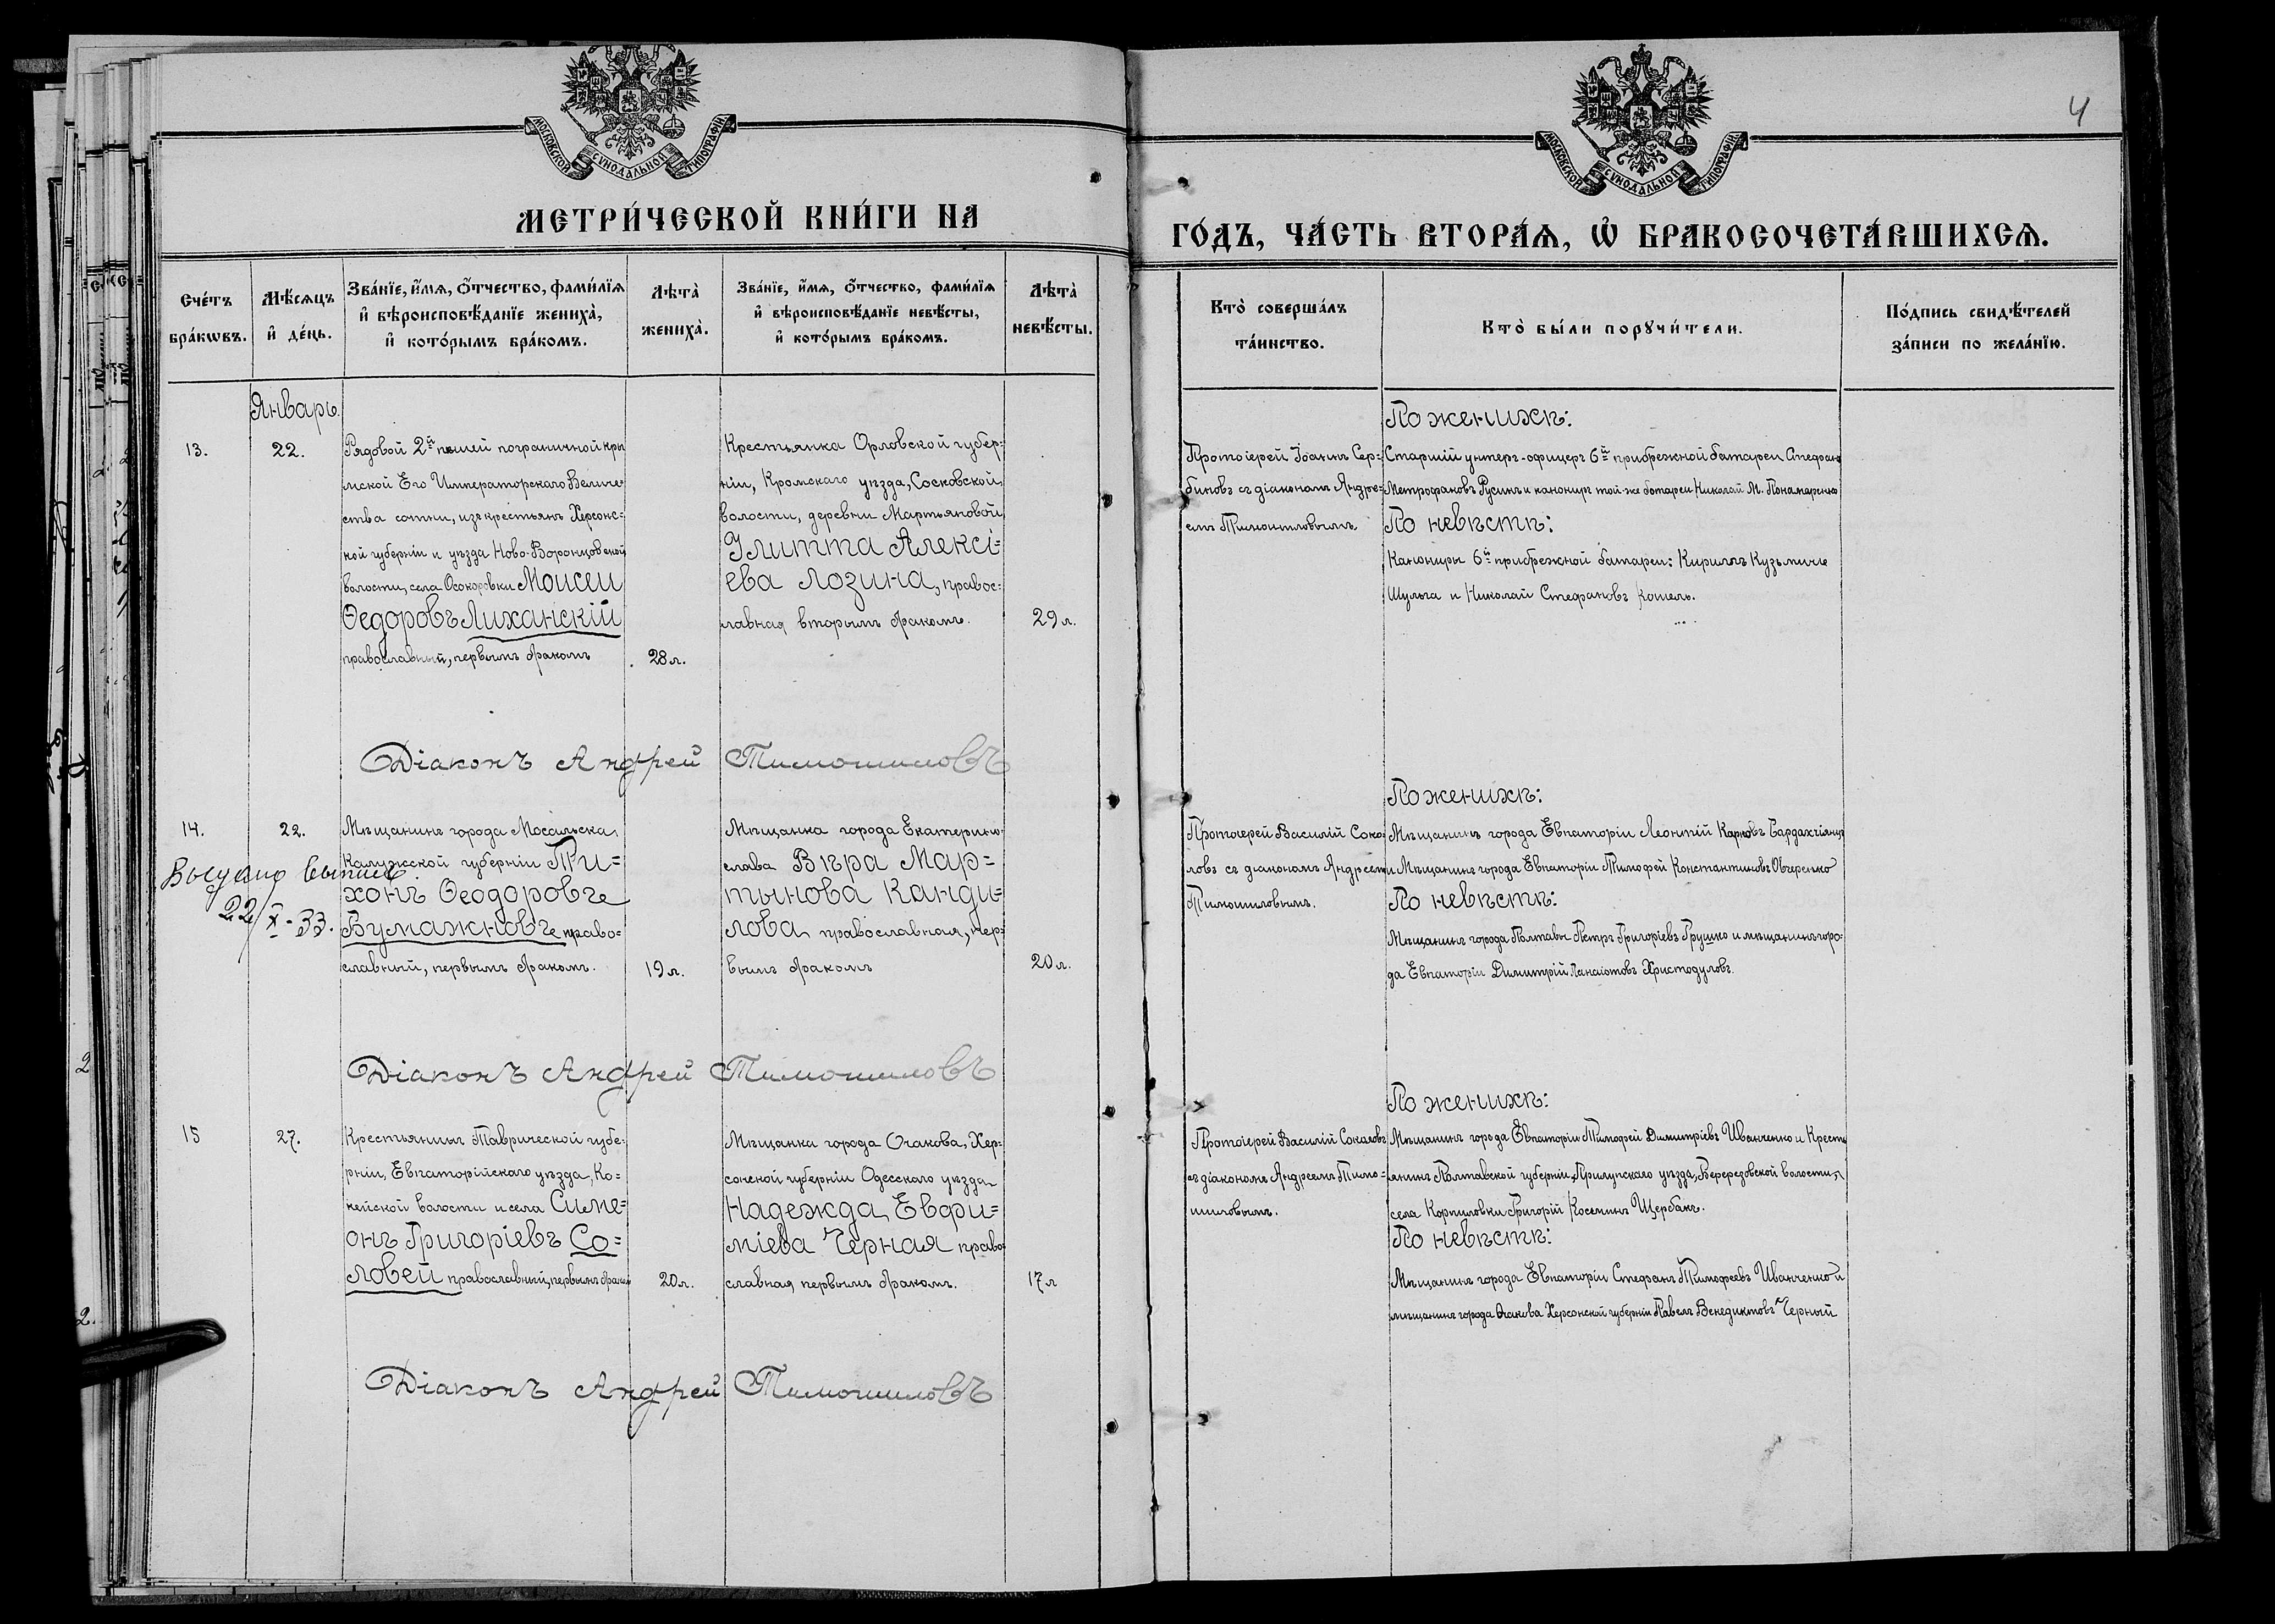 МОСКОВСКОЙ СѴНОДАЛЬНОЙ ТИПОГРАФІИ
МЕТРИ́ЧЕСКОЙ КНИ́ГИ НА
Сче́тъ бра́кѡвъ.
Мѣ́сяцъ и҆ де́нь.
Зва́нїе, и҆́мѧ, ѻ҆́тчество, фами́лїѧ
и҆ вѣроисповѣ́данїе жениха̀,
и҆ кото́рымъ бра́комъ.
Лѣта̀ жениха̀.
Зва́нїе, и҆́мѧ, ѻ҆́тчество, фами́лїѧ
и҆ вѣроисповѣ́данїе невѣ́сты,
и҆ кото́рымъ бра́комъ.
Лѣта̀ невѣ́сты.
Январь.
13.
22.
Рядовой 2й пѣшей пограничной кры
мской Его Императорскаго Величе
ства сотни, изъ крестьянъ Херсонс=
кой губерніи и уѣзда Ново-Воронцовской
волости, села Осокоровки Моисей
Ѳедоровъ Лиханскій
православный, первымъ бракомъ
28 л.
Крестьянка Орловской губер=
ніи, Кромскаго уѣзда, Сосковской
волости, деревни Мартьяновой
Улитта Алексі=
ева Лозина, правос=
лавная вторымъ бракомъ.
29 л.
Діаконъ Андрей Тимошиловъ
14.
22.
Мѣщанинъ города Мосальска,
Калужской губерніи Ти=
хонъ Ѳеодоровъ
Бумажновъ, право=
славный, первымъ бракомъ.
19 л.
22/X-33.
Мѣщанка города Екатерино=
слава Вѣра Мар=
тынова Канди=
лова, православная, пер=
вымъ бракомъ
20 л.
Діаконъ Андрей Тимошиловъ
15
27.
Крестьянинъ Таврической губе=
рніи, Евпаторійскаго уѣзда, Ко=
нейской волости и села Симе=
онъ Григоріевъ Со=
ловей православный, первымъ бракомъ
20 л.
Мѣщанка города Очакова, Хер=
сонской губерніи Одесскаго уѣзда
Надежда Евфи=
міева Черная право=
славная, первымъ бракомъ.
17 л
Діаконъ Андрей Тимошиловъ
4
МОСКОВСКОЙ СѴНОДАЛЬНОЙ ТИПОГРАФІИ
ГО́ДЪ, ЧА́СТЬ ВТОРА́Ѧ, Ѡ҆ БРАКОСОЧЕТА́ВШИХСѦ.
Кто̀ соверша́лъ
та́инство.
Кто̀ бы́ли порꙋчи́тели.
По́дпись свидѣ́телей
за́писи по жела́нїю.
Протоіерей Іоаннъ Сер=
биновъ съ діакономъ Андре=
емъ Тимошиловымъ.
По женихѣ:
Старшій унтеръ-офицеръ 6й прибрежной батареи Стефанъ
Метрофановъ Русинъ и канониръ той-же батареи Николай М. Понамаренко
По невѣстѣ:
Канониры 6й прибрежной батареи: Кириллъ Кузьмичъ
Шульга и Николай Стефановъ Кошель.
Протоіерей Василій Соко=
ловъ съ діакономъ Андреемъ
Тимошиловымъ.
По женихѣ:
Мѣщанинъ города Евпаторіи Леонтій Карповъ Бардахчіянцъ
и Мѣщанинъ города Евпаторіи Тимофей Константиновъ Овчеренко
По невѣстѣ:
Мѣщанинъ города Полтавы Петръ Григоріевъ Грушко и мѣщанинъ горо=
да Евпаторіи Димитрій Панаіотовъ Христодуловъ.
Протоіерей Василій Соколовъ
съ діакономъ Андреемъ Тимо=
шиловымъ.
По женихѣ:
Мѣщанинъ города Евпаторіи Тимофей Димитріевъ Иванченко и Кресть
янинъ Полтавской губерніи, Прилукскаго уѣзда, волости,
села Корниловки Григорій Косминъ Щербакъ.
По невѣстѣ:
Мѣщанинъ города Евпаторіи Стефанъ Тимофеевъ Иванченко и
мѣщанинъ города Очакова Херсонской губерніи Павелъ Венедиктовъ Черный